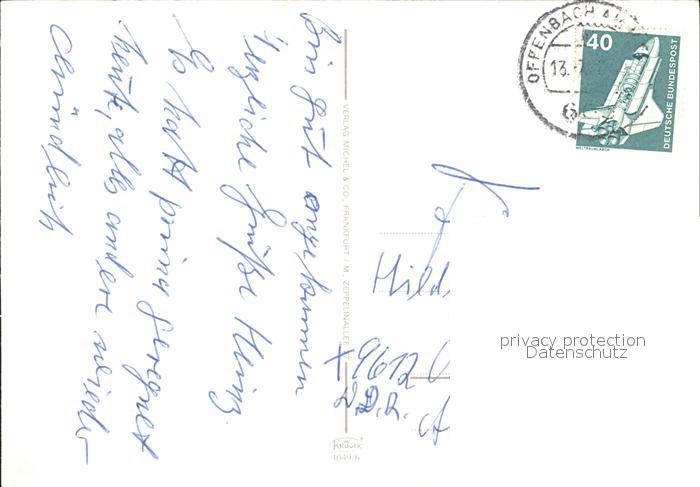 Bin gut angekommen
Herzliche Grüße Heinz.
Es hat prima geregnet
heute, alles andere wieder
mündlich
VERLAG MICHEL & CO., FRANKFURT / M., ZEPPELINALLEE
KRÜGER
OFFENBACH AM
13.
6
40
DEUTSCHE BUNDESPOST
WELTRAUMLABOR
Hild
+ 9612
D.D.R.
privacy protection
Datenschutz